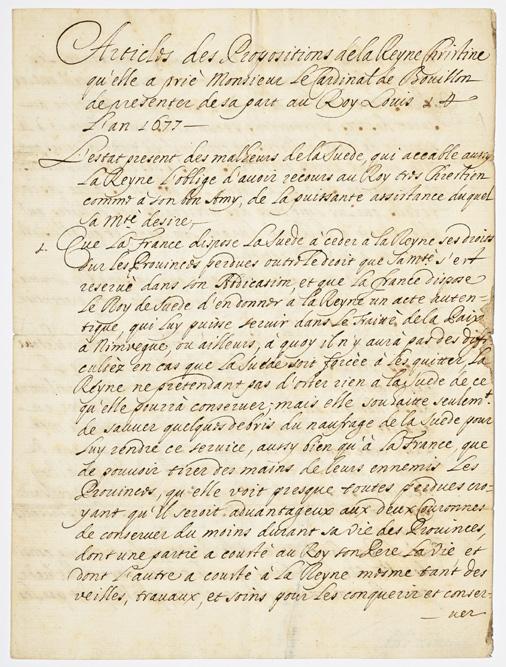 Articles des Propositions de la Reyne Christine
qu'elle a priè Monsieur le Cardinal de Bouillon
de presenter de sa part au Roy Louis 14
l'an 1677 —
L'estat present des malheurs de la Suede, qui accable aussy
la Reyne l'oblige d'avoir recours au Roy tres Chrestien
comme a son bon Amy, de la puissante assistance duquel
Sa Mté desire,
1. Que la France dispose la Suede à ceder à la Reyne ses droits
sur les Provinces perdues outre le droit que Sa Mté s'est
reservè dans son Abdication, et que la France dispose
le Roy de Suede d'en donner à la Reyne un acte auten-
tique, qui luy puisse servir dans le Traitè de la Paix
à Nimvegue, ou ailleurs, à quoy il n'y aura pas des diffi-
cultèz en cas que la Suede soit forcèe à les quitter, la
Reyne ne prétendant pas d'oster rien à la Suede de ce
qu'elle pourrà conserver; mais elle souhaitte seulemt
de sauver quelques debris du naufrage de la Suede pour
luy rendre ce service, aussy bien qu'à la France, que
de pouvoir tirer des mains de leurs ennemis les
Provinces, qu'elle voit presque toutes perdues cro-
yant qu'il seroit advantageux aux deux Couronnes
de conserver du moins durant sa vie des Provinces,
dont une partie a coustè au Roy son Pere la vie et
dont l'autre a coustè à la Reyne mesme tant des
veilles, travaux, et soins pour les conquerir et conser-
— ver